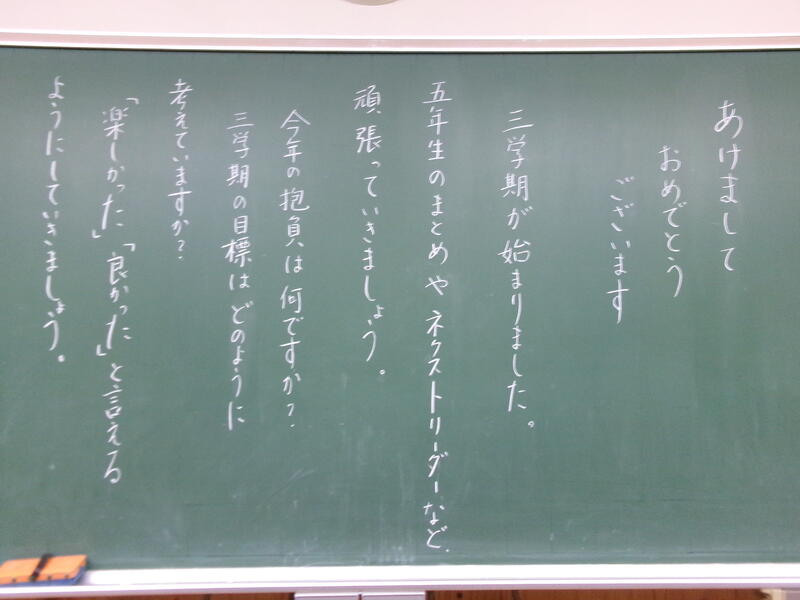 あけまして
おめでとう
ございます
三学期が始まりました。
五年生のまとめやネクストリーダーなど、
頑張っていきましょう。
今年の抱負は何ですか?
三学期の目標はどのように
考えていますか?
「楽しかった」「良かった」と言える
ようにしていきましょう。